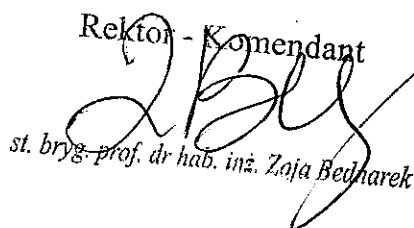 Rektor - Komendant
st. bryg. prof. dr hab. inż. Zoja Bednarek